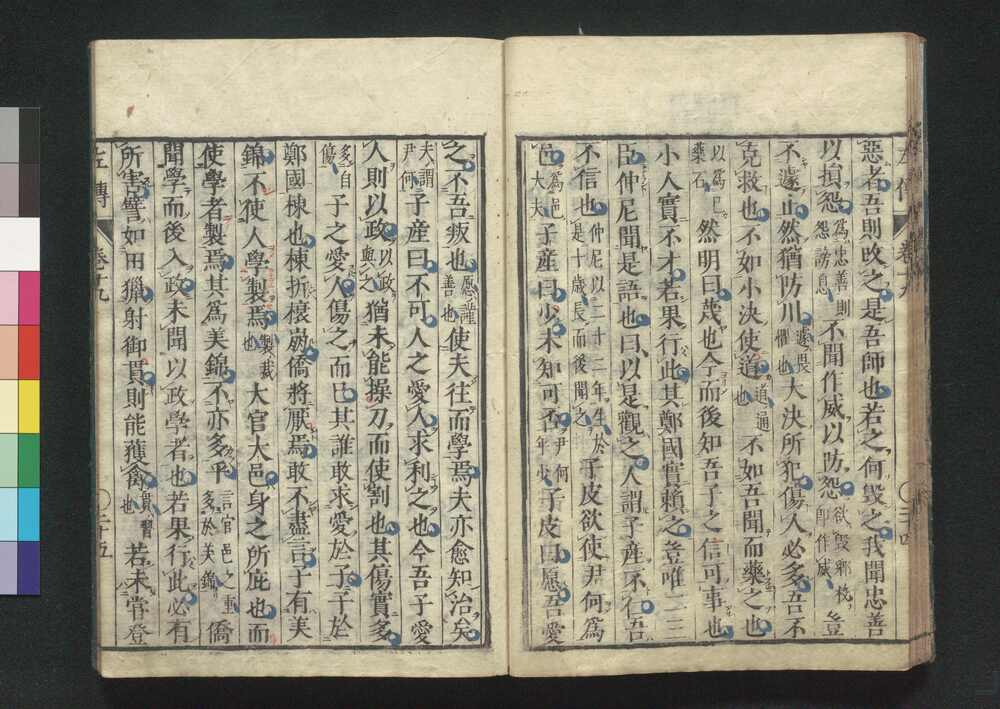 惡者吾則改之是吾師也若之何毀之我聞忠善
以損怨爲忠善則怨謗息不聞作威以防怨欲毀鄉校即作威豈
不遽止然猶防川遽畏懼也大決所犯傷人必多吾不
克救也不如小決使道道通也不如吾聞而藥之也
以爲已藥石然明曰蔑也今而後知吾子之信可事也
小人實不才若果行此其鄭國實賴之豈唯二三
臣仲尼聞是語也曰以是觀之人謂子產不仁吾
不信也仲尼以二十二年生於是十歲長而後聞之子皮欲使尹何爲
邑爲邑大夫子產曰少未知可否尹何年少子皮曰愿吾愛
之不吾叛也愿謹善也使夫往而學焉夫亦愈知治矣
夫謂尹何子產曰不可人之愛人求利之也今吾子愛
人則以政以政與之猶未能操刀而使割也其傷實多
多自傷子之愛人傷之而已其誰敢求愛於子子於
鄭國棟也棟折榱崩僑將厭焉敢不盡言子有美
錦不使人學製焉製裁也大官大邑身之所庇也而
使學者製焉其爲美錦不亦多乎言官邑之重多於美錦僑
聞學而後入政未聞以政學者也若果行此必有
所害譬如田獵射御貫則能獲禽貫習也若未嘗登
左傳
卷十九
二十五